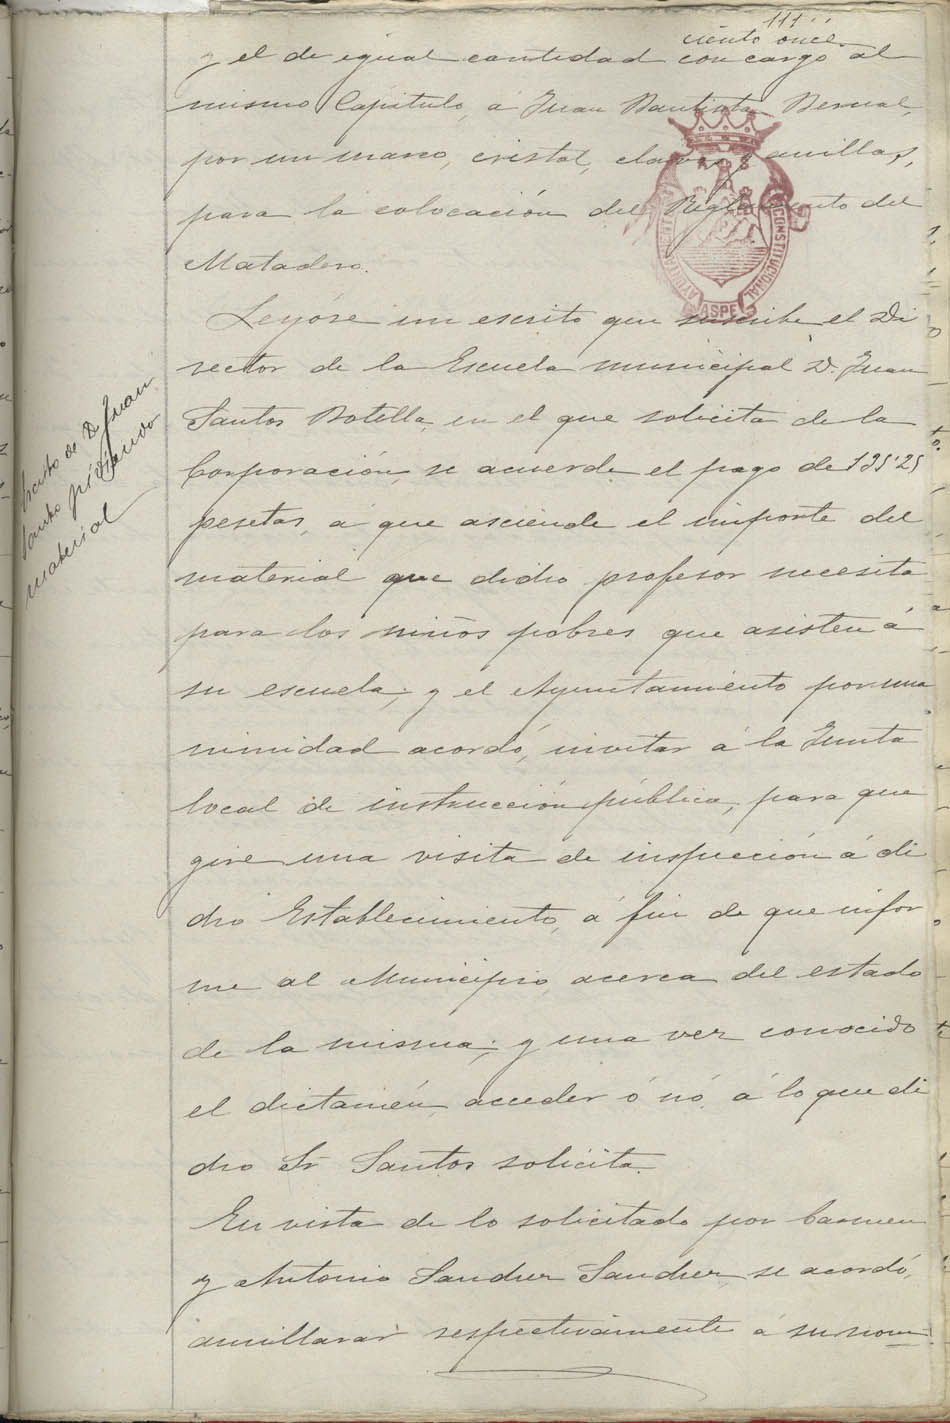 111
ciento once
y el de igual cantidad con cargo al
mismo Capitulo, á Juan Bautista Bernal,
por un marco, cristal, clavos y anillas,
para la colocación del Reglamento del
Matadero.
AYUNTAMIENTO CONSTITUCIONAL
ASPE
Leyóse un escrito que suscribe el Di
rector de la Escuela municipal D. Juan
Santos Botella, en el que solicita de la
Corporación, se acuerde el pago de
pesetas, á que asciende el importe del
material que dicho profesor necesita
para los niños pobres que asisten á
su escuela; y el Ayuntamiento por una
nimidad acordó, invitar á la Junta
local de instrucción pública, para que
gire una visita de inspección á di
cho Establecimiento, á fin de que infor
me al Municipio, acerca del estado
de la misma; y una vez conocido
el dictamén, acceder ó nó, á lo que di
cho Sr Santos solicita.
En vista de lo solicitado por Carmen
y Antonio Sanchez Sanchez, se acordó,
amillarar respectivamente á su nom
Escrito de D Juan
Santos pidiendo
material